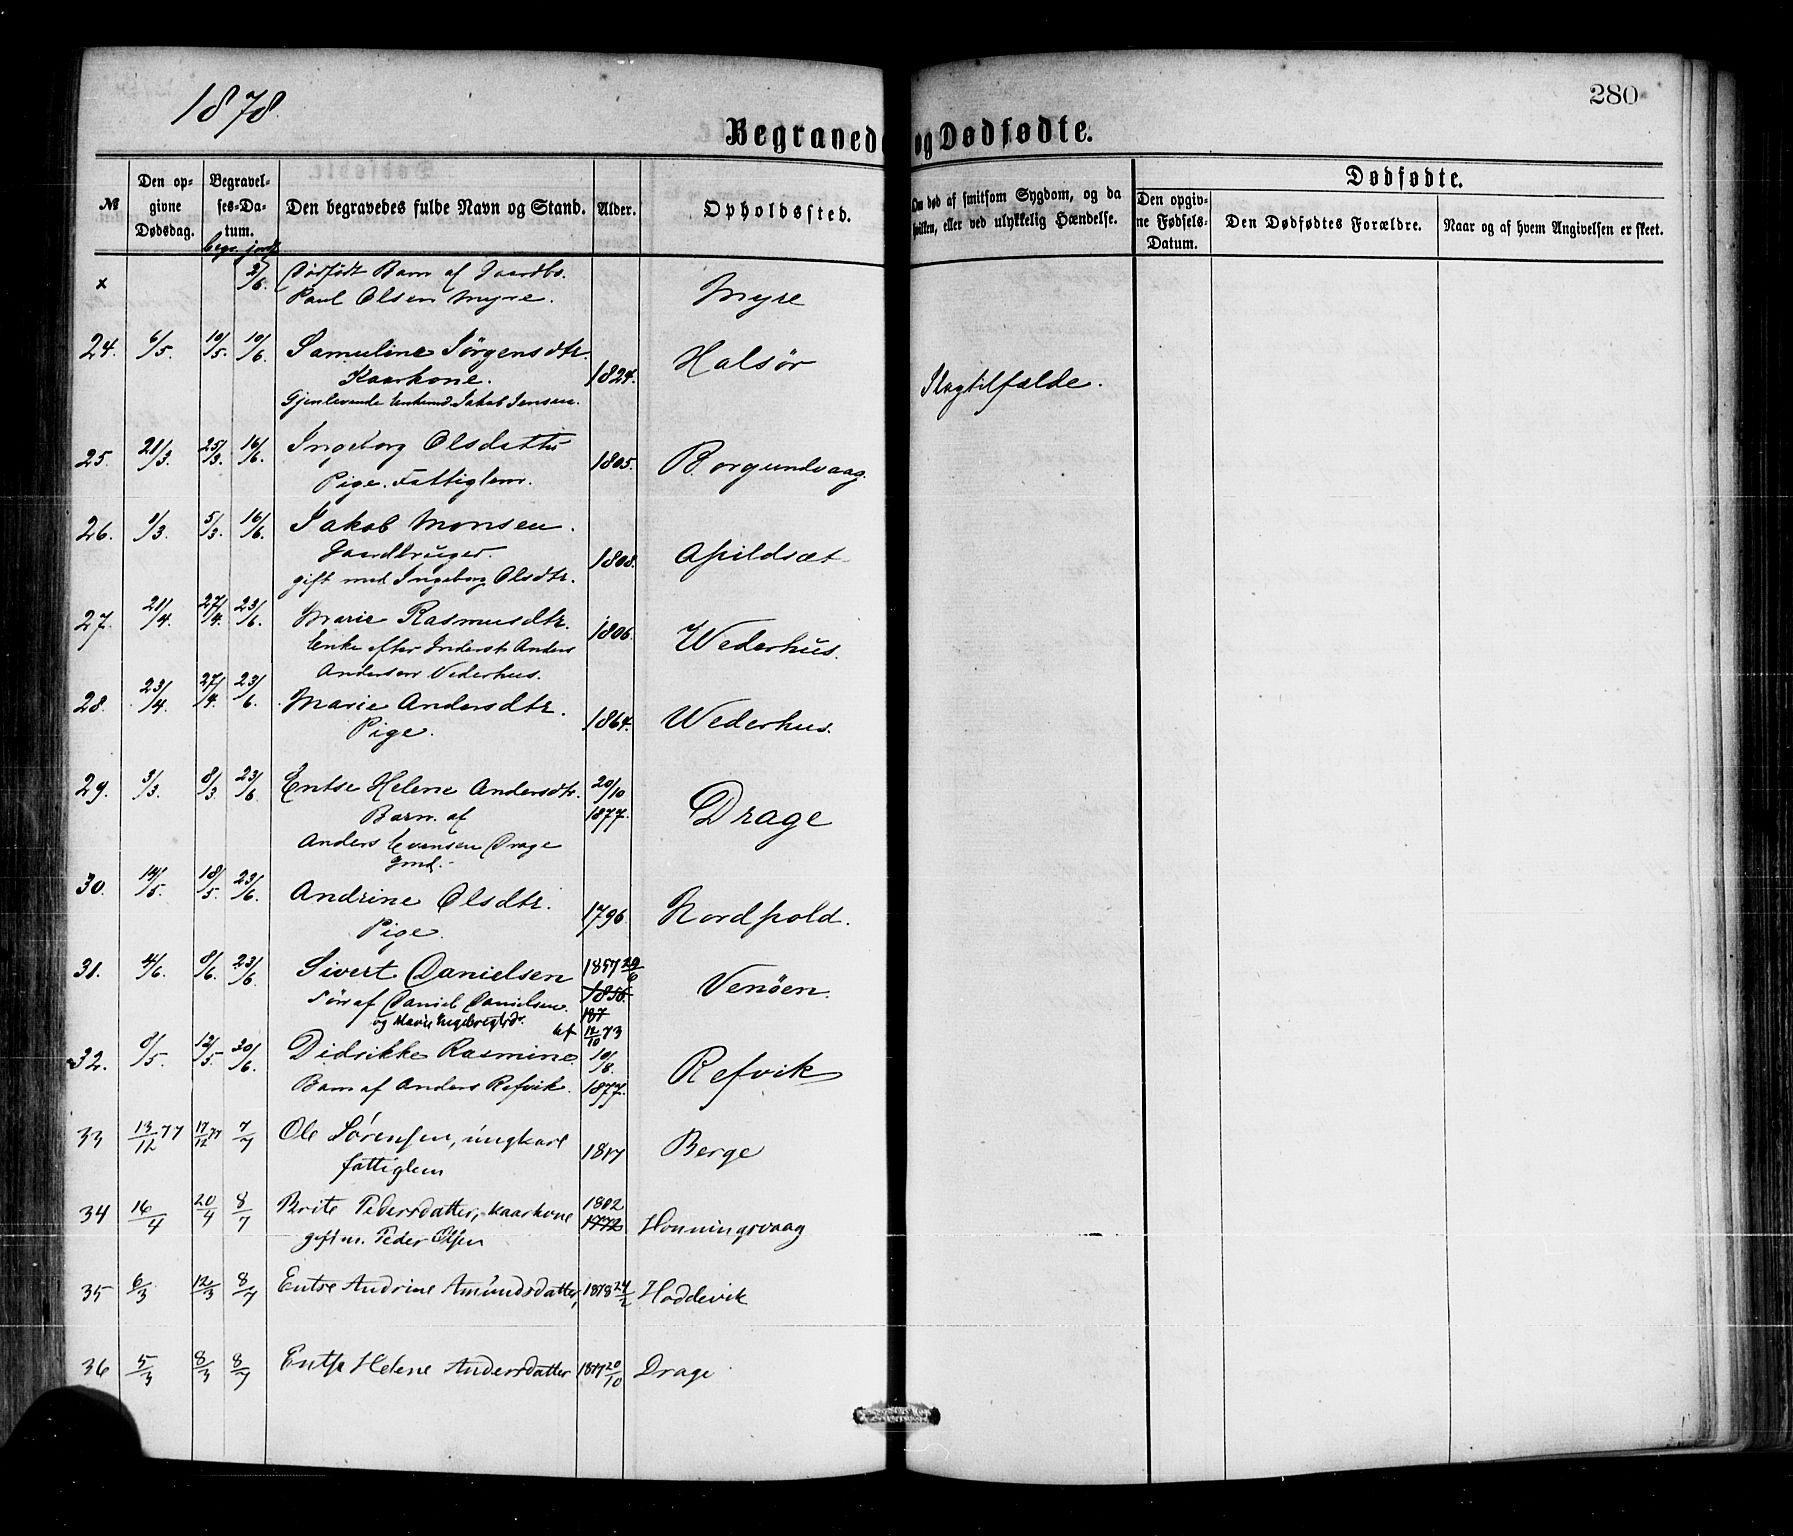 1878.
280
Begravede og Dødfødte.
№
Den op-
givne
Dødsdag.
Begravel-
ses-Da-
tum.
begr. jordf.
Den begravedes fulde Navn og Stand.
Alder.
Opholdssted.
Om død af smitsom Sygdom, og da
hvilken, eller ved ulykkelig Hændelse.
Dødfødte.
Den opgiv-
ne Fødsels-
Datum.
Den Dødfødtes Forældre.
Naar og af hvem Angivelsen er skeet.
x 2/6. Dødfødt Barn af Gaardbr.
Paul Olsen Myre. Myre
24. 6/5. 10/5. 10/6. Samuline Jørgensdtr. 1824. Halsør Slagtilfælde.
Kaarkone.
Gjenlevende Enkemd. Jakob Jensen.
25. 21/3. 25/3. 16/6. Ingeborg Olsdatter 1805. Borgundvaag.
Pige. Fattiglem.
26. 1/3. 5/3. 16/6. Jakob Monsen. 1808. Apildsæt
Gaardbruger.
gift med Ingeborg Olsdtr.
27. 21/4. 27/4. 23/6. Marie Rasmusdtr. 1806. Wederhus.
Enke efter Inderst Anders
Andersen Vederhus.
28. 23/4. 27/4. 23/6. Marie Andersdtr. 1864. Wederhus.
Pige.
29. 3/3. 8/3. 23/6. Entse Helene Andersdtr. 20/10 1877. Drage
Barn af
Anders Evensen Drage
Gmd.
30. 14/5. 18/5. 23/6. Andrine Olsdtr. 1796. Nordpold.
Pige.
31. 4/6. 8/6. 23/6. Sivert Danielsen 1857 29/6 Venöen.
1856.
Søn af Daniel Danielsen.
og Marie Ingebregtsd.
187
af 12/10 73
32. 9/5. 12/5. 30/6. Didrikke Rasmine 10/8. 1877. Refvik
Barn af Anders Refvik.
33 13/12 77 17/12 77 7/7 Ole Sørensen, ungkarl 1817 Berge
fattiglem
34 16/4 20/4 8/7 Brite Pedersdatter, kaarkone 1802 Honningsvaag
1772
gift m. Peder Olsen
35 6/3 12/3 8/7 Entse Andrine Amundsdatter, 1878 24/2 Hoddevik
36 5/3 8/3 8/7 Entse Helene Andersdatter 1877 20/10 Drage